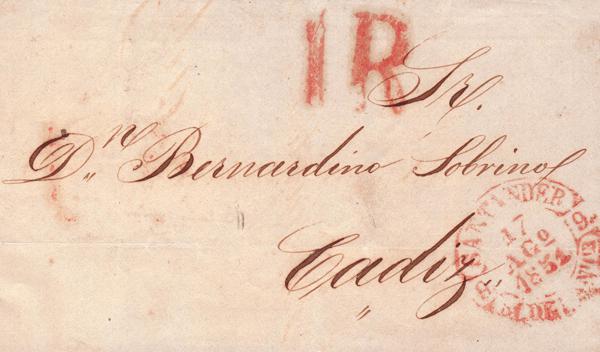 1R
Sr.
Dⁿ Bernardino Sobrino
Cadiz
SANTANDER
17
AGO
1851